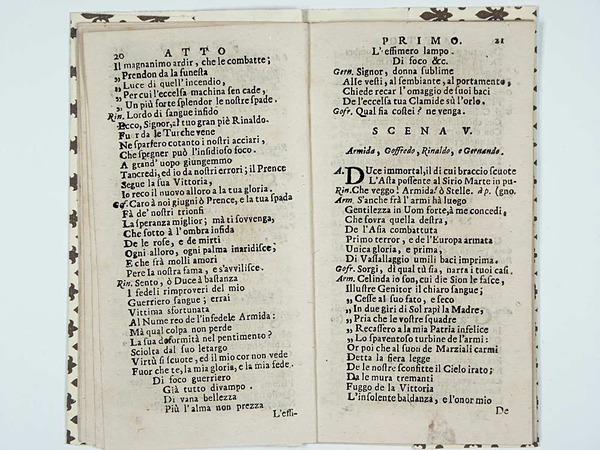 20
ATTO
Il magnanimo ardir, che le combatte;
„ Prendon da la funesta
„ Luce di quell'incendio,
„ Per cui l'eccelsa machina sen cade,
„ Un più forte splendor le nostre spade.
Rin. Lordo di sangue infido
Ecco, Signor, al tuo gran piè Rinaldo.
Fur da le Turche vene
Ne sparsero cotanto i nostri acciari,
Che spegner può l'insidioso foco.
A grand' uopo giungemmo
Tancredi, ed io da nostri errori; il Prence
Segue la sua Vittoria,
Io reco il nuovo alloro a la tua gloria.
Gof. Caro à noi giugni ò Prence, e la tua spada
Fà de' nostri trionfi
La speranza miglior; mà ti sovvenga,
Che sotto à l'ombra infida
De le rose, e de mirti
Ogni alloro, ogni palma inaridisce;
E che frà molli amori
Pere la nostra fama, e s'avvilisce.
Rin. Sento, ò Duce à bastanza
I fedeli rimproveri del mio
Guerriero sangue; errai
Vittima sfortunata
Al Nume reo de l'infedele Armida:
Mà qual colpa non perde
La sua deformità nel pentimento?
Sciolta dal suo letargo
Virtù si scuote, ed il mio cor non vede
Fuor che te, la mia gloria, e la mia fede.
Di foco guerriero
Già tutto divampo.
Di vana bellezza
Più l'alma non prezza
L'effi-
PRIMO.
21
L'effimero lampo.
Di foco &c.
Gern. Signor, donna sublime
Alle vesti, al sembiante, al portamento,
Chiede recar l'omaggio de suoi baci
De l'eccelsa tua Clamide sù l'orlo.
Gofr. Qual sia costei? ne venga.
SCENA V.
Armida, Goffredo, Rinaldo, e Gernando.
A. DUce immortal, il di cui braccio scuote
L'Asta possente al Sirio Marte in pu-
Rin. Che veggo! Armida! ò Stelle. à p. (gno.
Arm. S'anche frà l'armi hà luogo
Gentilezza in Uom forte, à me concedi,
Che sovra quella destra,
De l'Asia combattuta
Primo terror, e de l'Europa armata
Unica gloria, e prima,
Di Vassallaggio umili baci imprima.
Gofr. Sorgi, di qual tù sia, narra i tuoi casi.
Arm. Celinda io son, cui die Sion le fasce,
Illustre Genitor il chiaro sangue;
„ Cesse al suo fato, e seco
„ In due giri di Sol rapì la Madre,
„ Pria che le vostre squadre
„ Recassero a la mia Patria infelice
„ Lo spaventoso turbine de l'armi:
Or poi che al suon de Marziali carmi
Detta la fiera legge
De le nostre sconfitte il Cielo irato;
Da le mura tremanti
Fuggo de la Vittoria
L'insolente baldanza, e l'onor mio
De